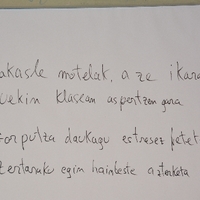 akasle motelak, a ze ikara
uekin klasean aspertzen gara
orputza daukagu estresez betet
zertarako egin hainbeste azterketa